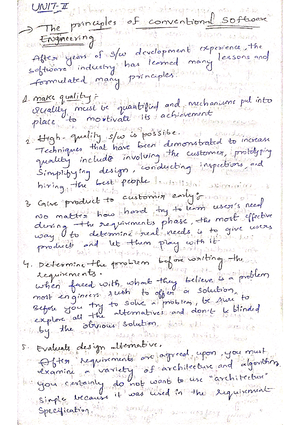 UNIT-II
→ The principles of conventional Software
Engineering
After years of s/w development experience, the
software industry has learned many lessons and
formulated many principles.
1. make quality:
Quality must be quantified and mechanisms put into
place to motivate its achievement
2. High-quality s/w is possible.
Techniques that have been demonstrated to increase
quality include involving the customer, prototyping
Simplifying design, conducting inspections, and
hiring the best people
3. Give product to customer early:
No matter how hard try to learn user's need
during the requirements phase, the most effective
way to determine real needs is to give users
product and let them play with it.
4. Determine the problem before writing the
requirements:
when faced with what they believe is a problem
most engineers rush to offer a solution.
Before you try to solve a problem, be sure to
explore all the alternatives and don't be blinded
by the obvious solution.
5. Evaluate design alternative.
After requirements are agreed upon, you must
examine a variety of architecture and algorithm,
you certainly do not want to use "architecture"
Simple because it was used in the requirement
Specification.